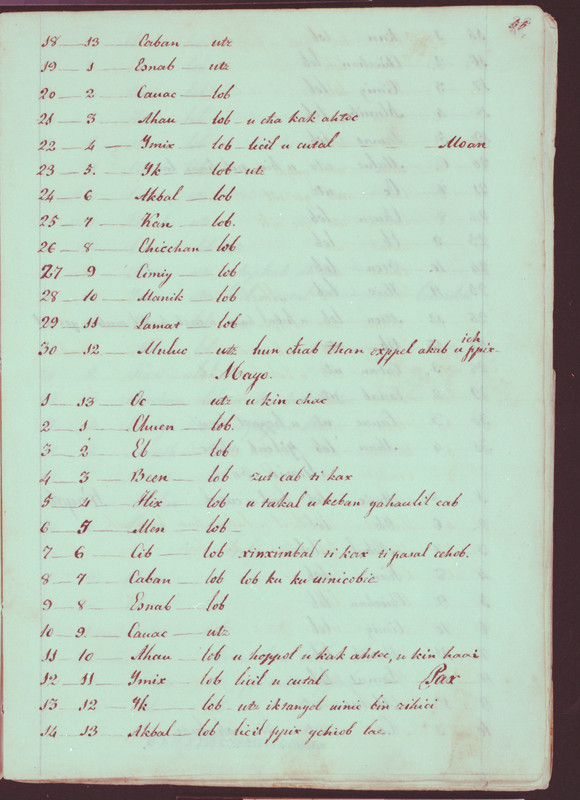 18 — 13 — Caban — utz
19 — 1 — Esnab — utz
20 — 2 — Cauac — lob
21 — 3 — Ahau — lob — u cha kak ahtoc
22 — 4 — Ymix — lob licil u cutal — Moan
23 — 5. — Yk — lob utz
24 — 6 — Akbal — lob
25 — 7 — Kan — lob.
26 — 8 — Chicchan — lob
27 — 9 — Cimiy — lob
28 — 10 — Manik — lob
29 — 11 — Lamat — lob
30 — 12 — Muluc — utz hun chab than oxppel akab u ich ppix.
Mayo.
1 — 13 — Oc — utz u kin chac
2 — 1 — Chuen — lob.
3 — 2 — Eb — lob
4 — 3 — Been — lob zut cab ti kax
5 — 4 — Hix — lob u takal u keban yahaulil cab
6 — 5 — Men — lob
7 — 6 — Cib — lob xinximbal ti kax ti pasal cehob.
8 — 7 — Caban — lob lob ku ku uinicobie
9 — 8 — Esnab — lob
10 — 9. — Cauac — utz
11 — 10 — Ahau — lob u hoppol u kak ahtoc, u kin haai
12 — 11 — Ymix — lob licil u cutal Pax
13 — 12 — Yk — lob utz iktanyol uinic bin zihici
14 — 13 — Akbal — lob licil ppix ychiob lae.